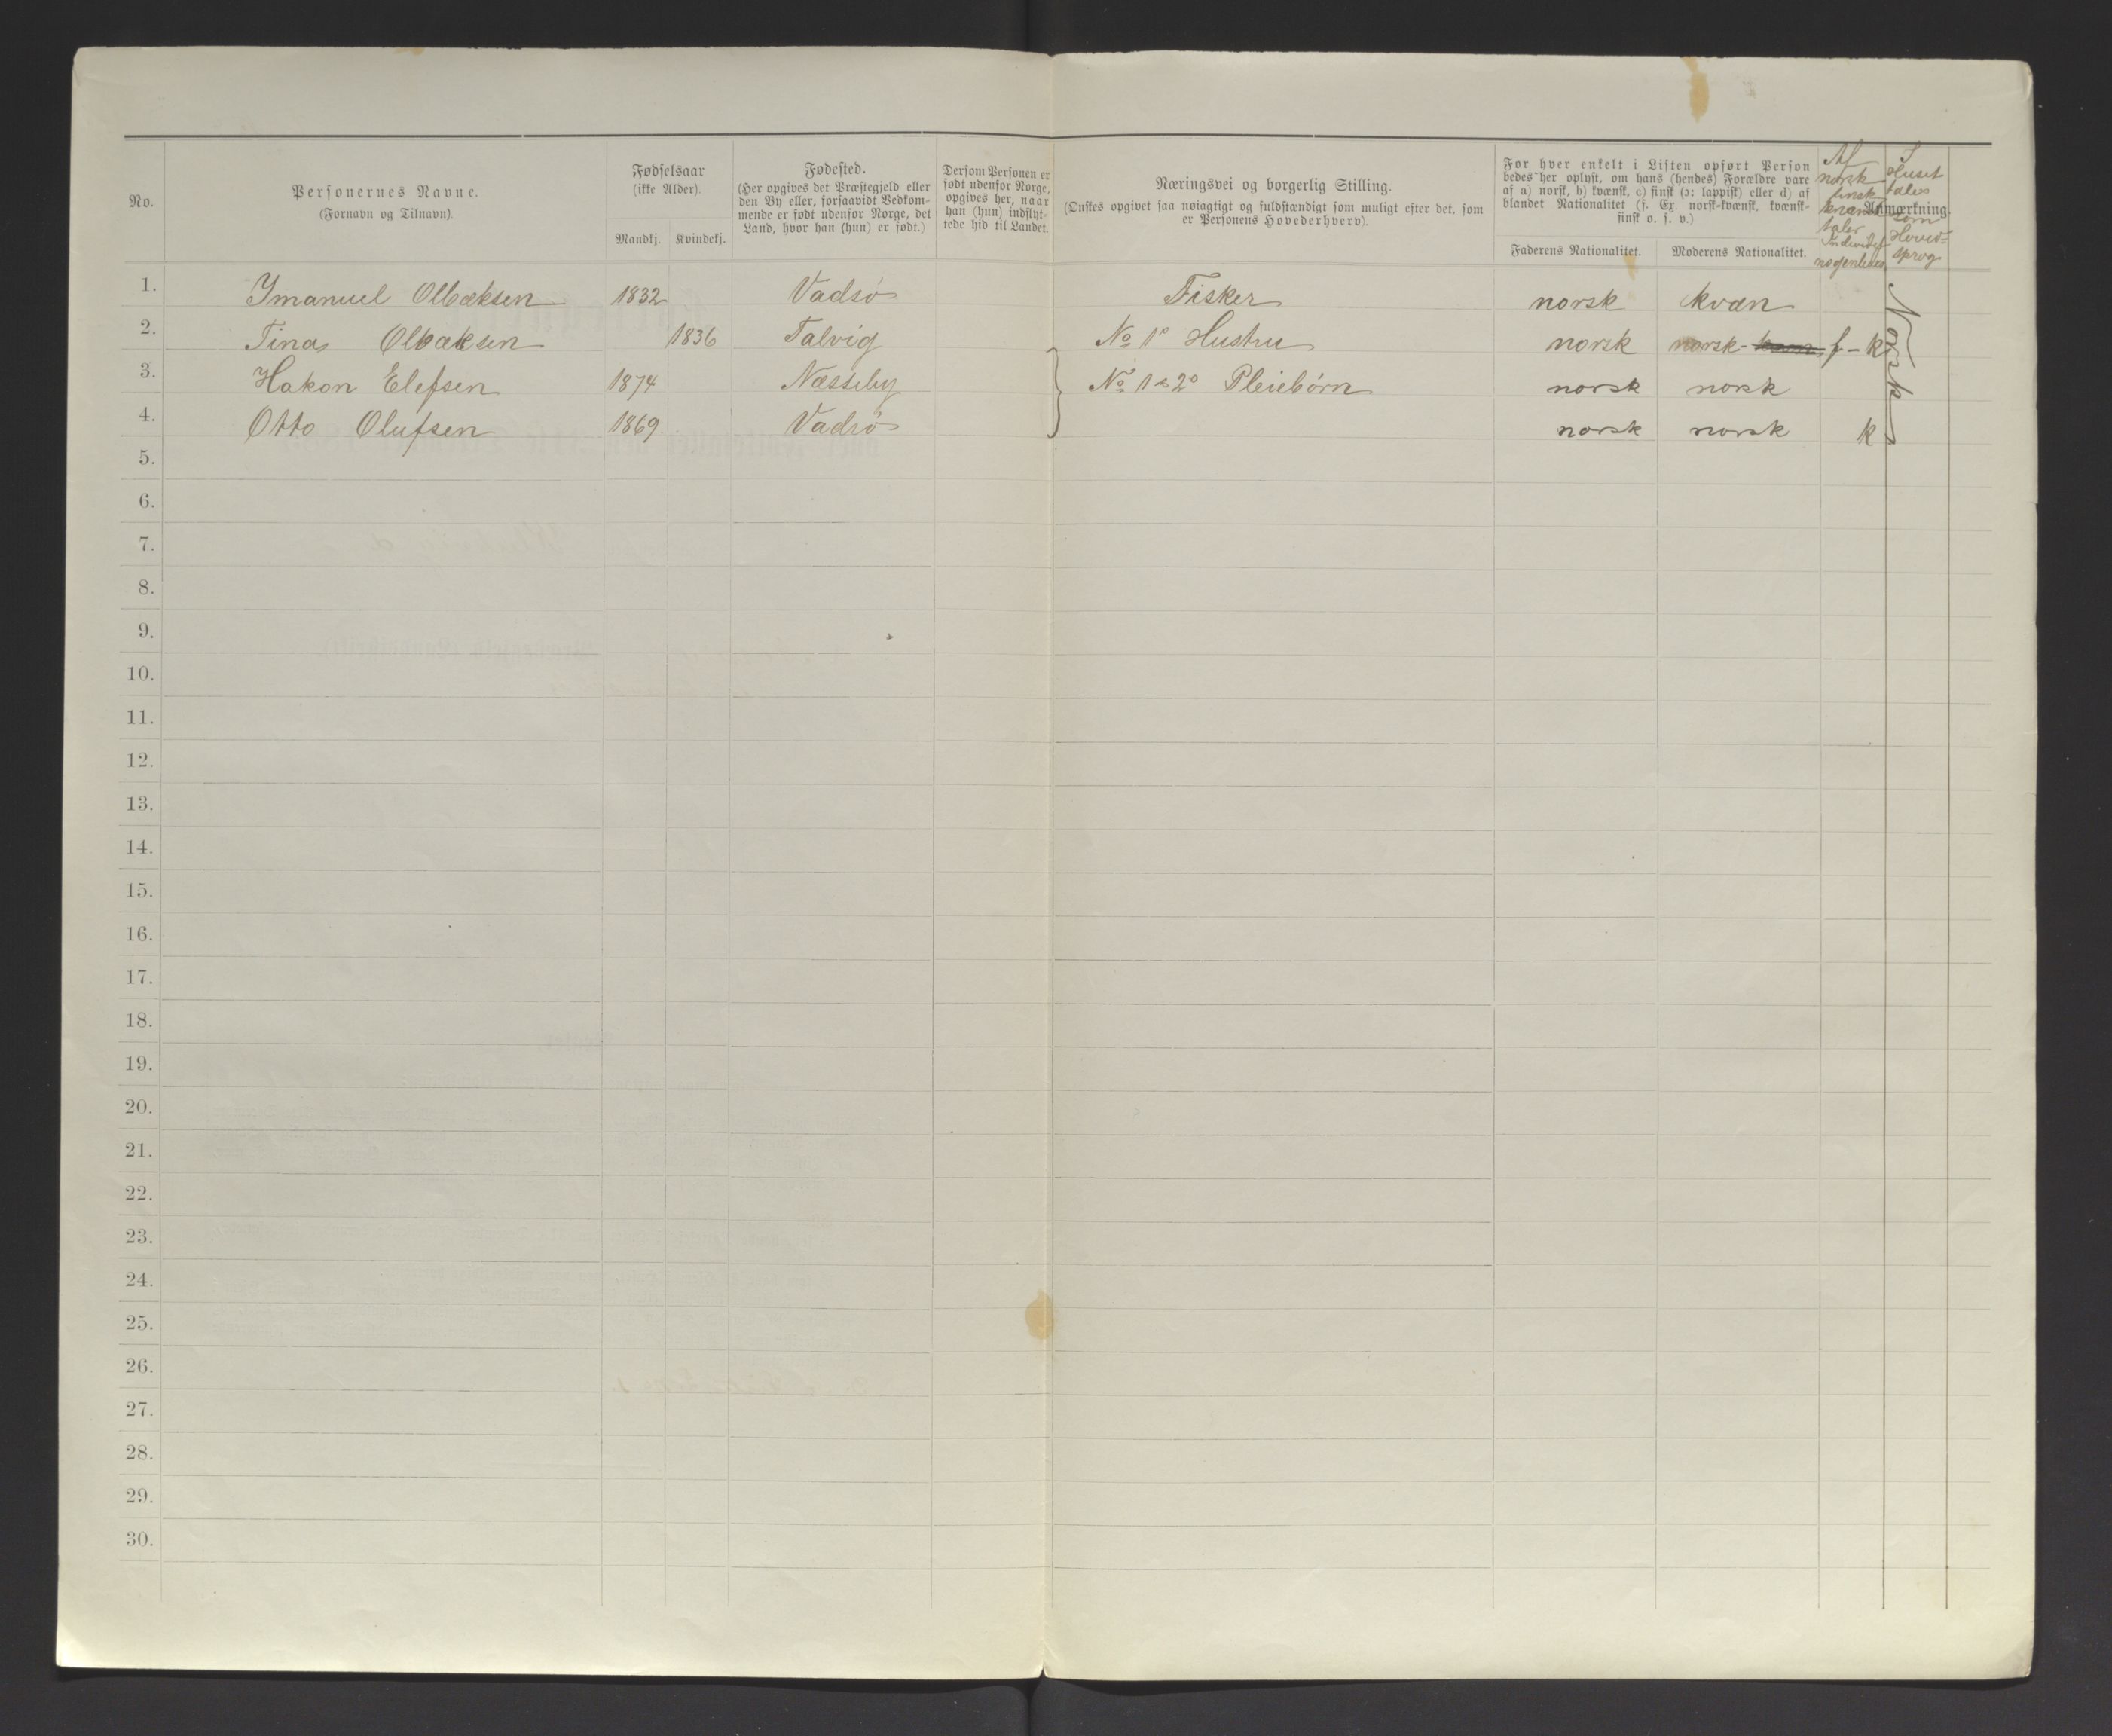 No.
Personernes Navne.
(Fornavn og Tilnavn).
Fødselsaar
(ikke Alder).
Mandkj. Kvindekj.
Fødested.
(Her opgives det Præstegjeld eller
den By eller, forsaavidt Vedkom-
mende er født udenfor Norge, det
Land, hvor han (hun) er født.)
Dersom Personen er
født udenfor Norge,
opgives her, naar
han (hun) indflyt-
tede hid til Landet.
Næringsvei og borgerlig Stilling.
(Ønskes opgivet saa nøiagtigt og fuldstændigt som muligt efter det, som
er Personens Hovederhverv).
For hver enkelt i Listen opført Person
bedes her oplyst, om hans (hendes) Forældre vare
af a) norsk, b) kvænsk, c) finsk (ɔ: lappisk) eller d) af
blandet Nationalitet (f. Ex. norsk-kvænsk, kvænsk-
finsk o. s. v.)
Faderens Nationalitet. Moderens Nationalitet.
Anmærkning.
Af
norsk
finsk
kvænsk
taler
Individet
nogenlunde
I
Huset
tales
som
Hoved-
sprog
1. Imanuel Olbæksen 1832 Vadsø Fisker norsk kvæn
2. Tina Olbæksen 1836 Talvig No 1s Hustru norsk norsk- kvæn f-k
3. Hakon Elefsen 1874 Næsseby No 1 & 2s Pleiebørn norsk norsk
4. Otto Olufsen 1869 Vadsø norsk norsk k
Norsk
5.
6.
7.
8.
9.
10.
11.
12.
13.
14.
15.
16.
17.
18.
19.
20.
21.
22.
23.
24.
25.
26.
27.
28.
29.
30.